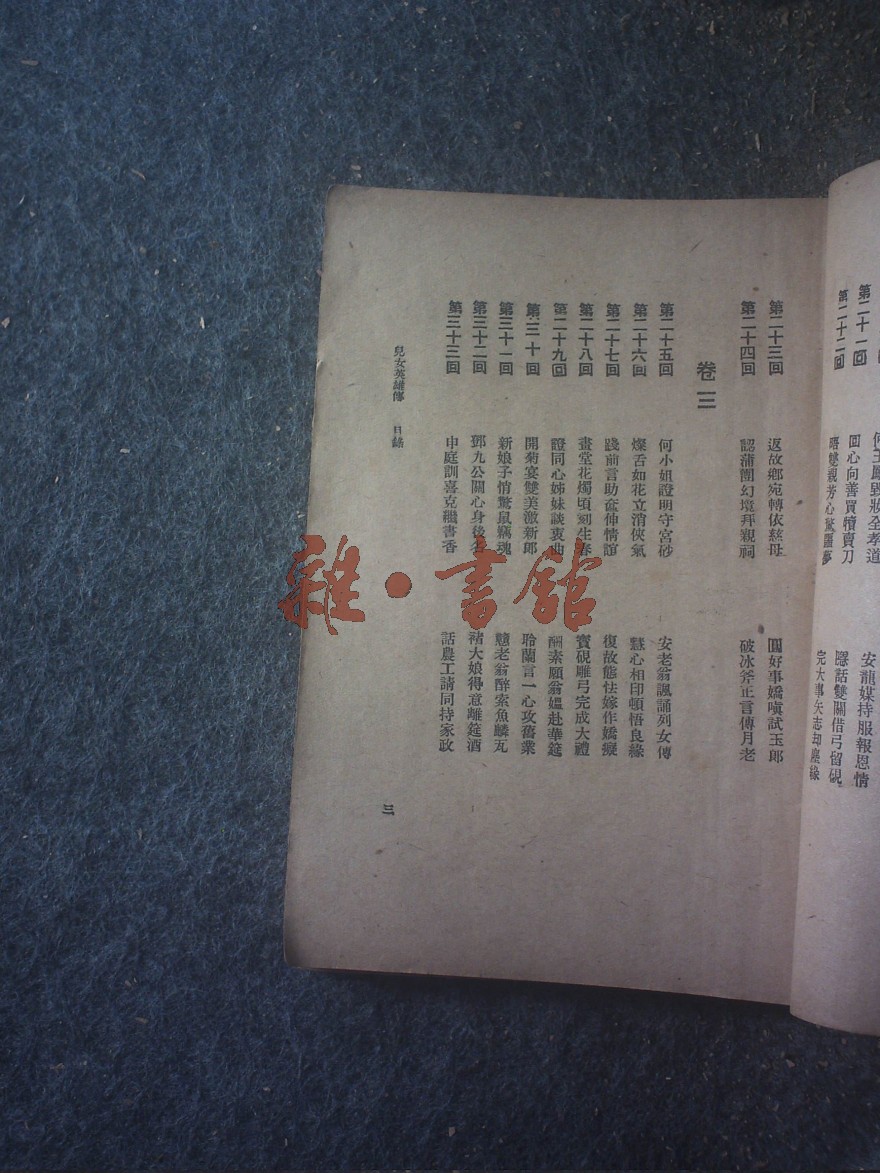 第二十一回
何玉鳳毀妝全孝道　安龍媒持服報恩情
第二十二回
回心向善買犢賣刀　隱話雙關借弓留硯
晤雙親芳心驚噩夢　完大事矢志却塵緣
第二十三回　返故鄉宛轉依慈母　圓好事嬌嗔試玉郎
第二十四回　認蒲團幻境拜親祠　破冰斧正言傳月老
卷三
第二十五回　何小姐證明守宮砂　安老翁諷誦列女傳
第二十六回　燦舌如花立消俠氣　慧心相印頓悟良緣
第二十七回　踐前言助奩伸情誼　復故態怯嫁作嬌癡
第二十八回　畫堂花燭頃刻生春　寶硯雕弓完成大禮
第二十九回　證同心姊妹談衷曲　酬素願翁媼赴華筵
第三十回　開菊宴雙美激新郎　聆蘭言一心攻舊業
第三十一回　新娘子悄驚鼠竊魂　戇老翁醉索魚鱗瓦
第三十二回　鄧九公關心身後名　褚大娘得意離筵酒
第三十三回　申庭訓喜克繼書香　話農工請同持家政
兒女英雄傳　目錄
三
雜·書館